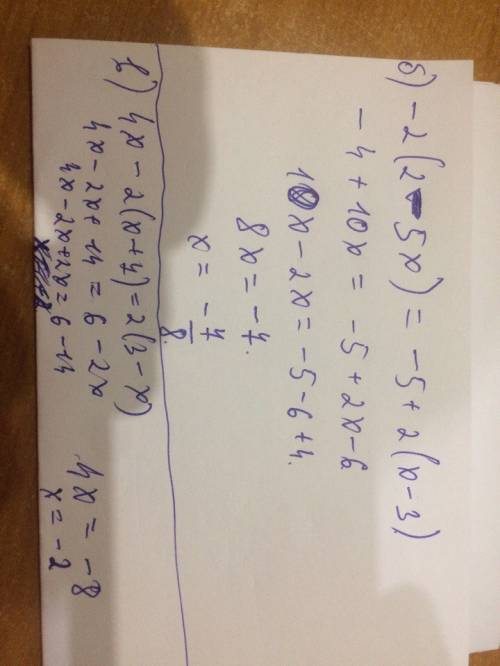 б) -2(2-5x) = -5+2(x-3)
-4+10x = -5+2x-6
10x-2x = -5-6+4.
8x = -7.
x = -7/8.
в) 4x-2(x+7)=2(3-x)
4x-2x+14=6-2x
4x-2x+2x=6-14
4x=-8
x=-2